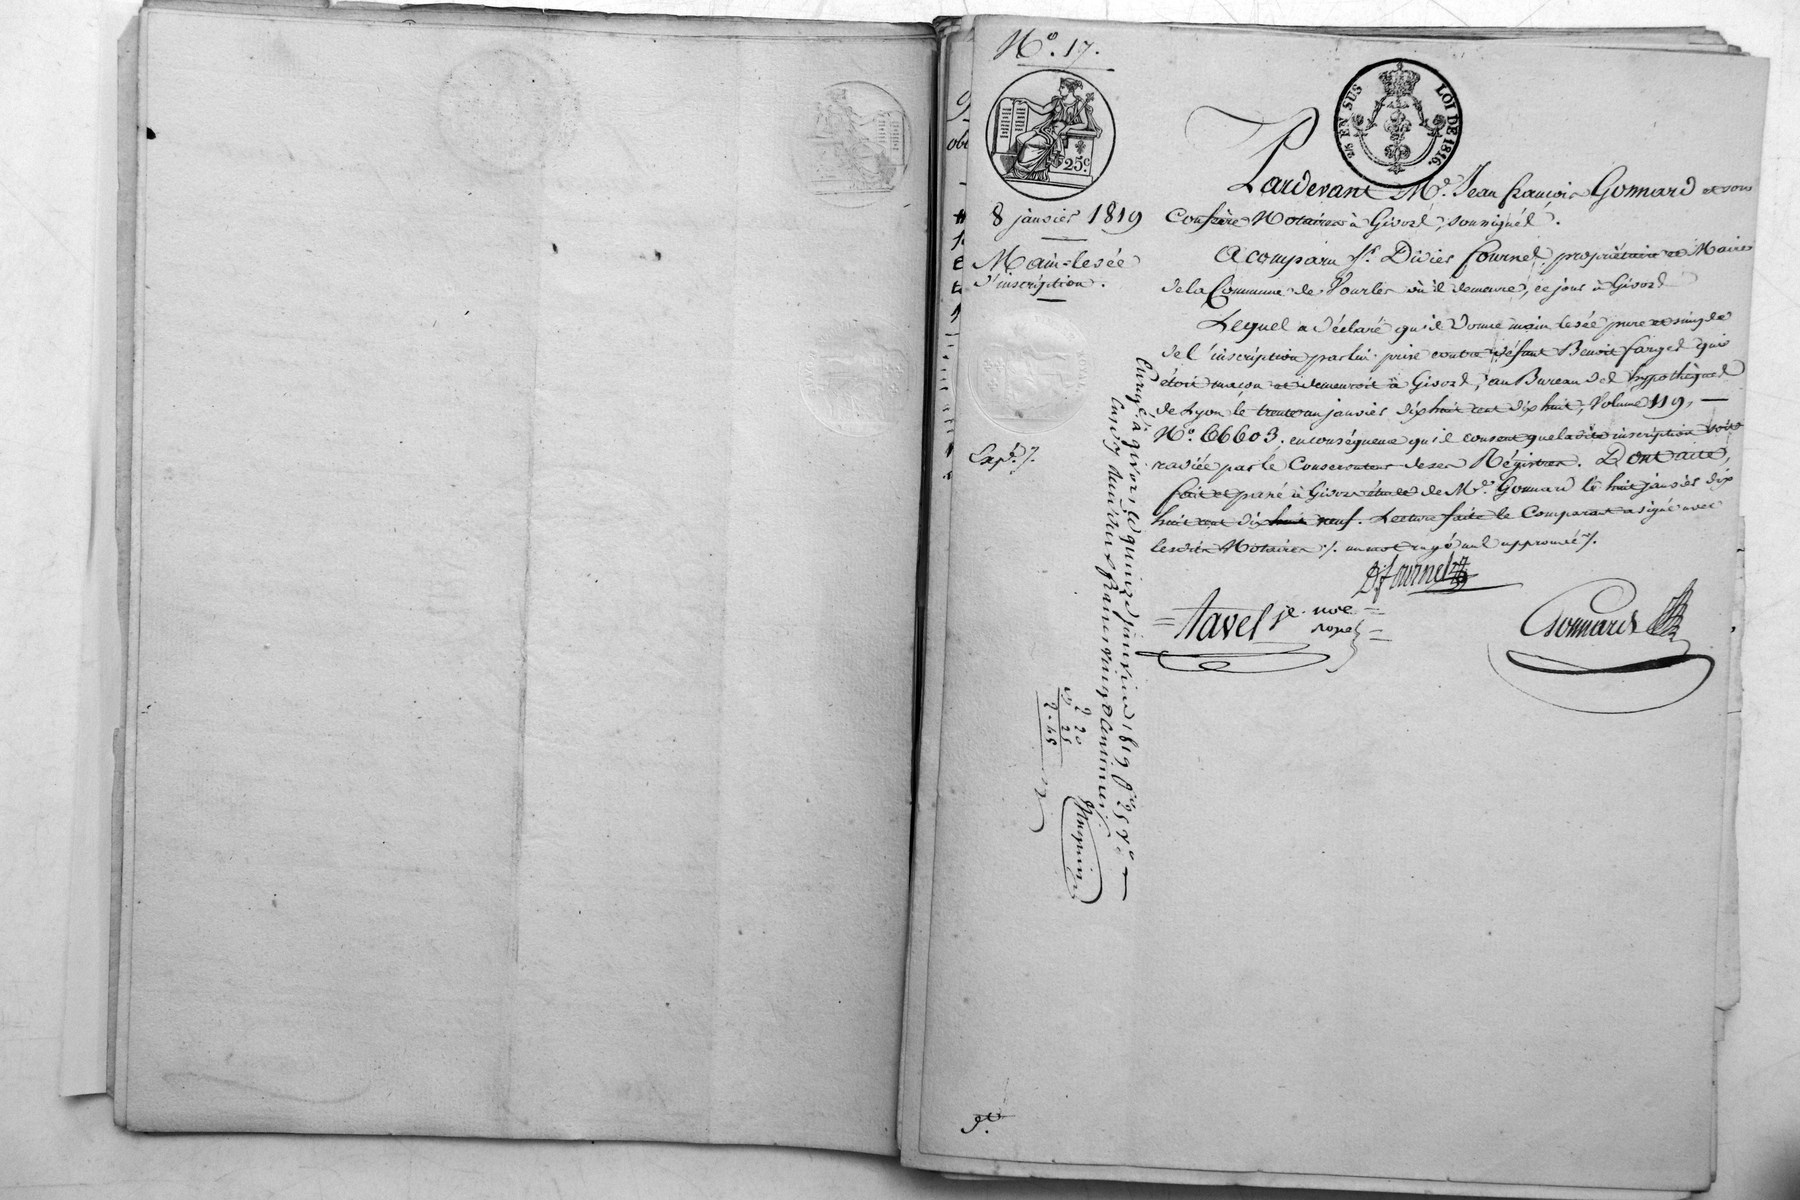 No. 17.
25 c.
2/5 EN SUS LOI DE 1816.
8 janvier 1819
Main-levée
d'inscription.
Expé. /.
Pardevant Me. Jean françois Gonnard et son
Confrère Notaires à Givors, soussignés.
A comparu sr. Didier fournel, propriétaire et Maire
de la Commune de Vourles où il demeure, ce jour à Givors
Lequel a déclaré qu'il donne main levée pure et simple
de l'inscription par lui prise contre défunt Benoit farget qui
étoit maçon et demeuroit à Givors, au Bureau des hypothèques
de Lyon le trente un janvier dix huit cent dix huit, Volume 119,
No. 66603. en conséquence qu'il consent que ladite inscription soit
radiée par le Conservateur de ses Régistres. Dont acte,
fait et passé à Givors étude de Me. Gonnard le huit janvier dix
huit cent dix huit neuf. Lecture faite le Comparant a signé avec
lesdits Notaires /. un mot rayé nul approuvé /.
D. fournel
Tavel je. nre
royal
Gonnard
Enregé. à givors le quinze janvier 1819 fo. 25 vo.
reçu deux francs vingt Centimes
2 20
25
2.45